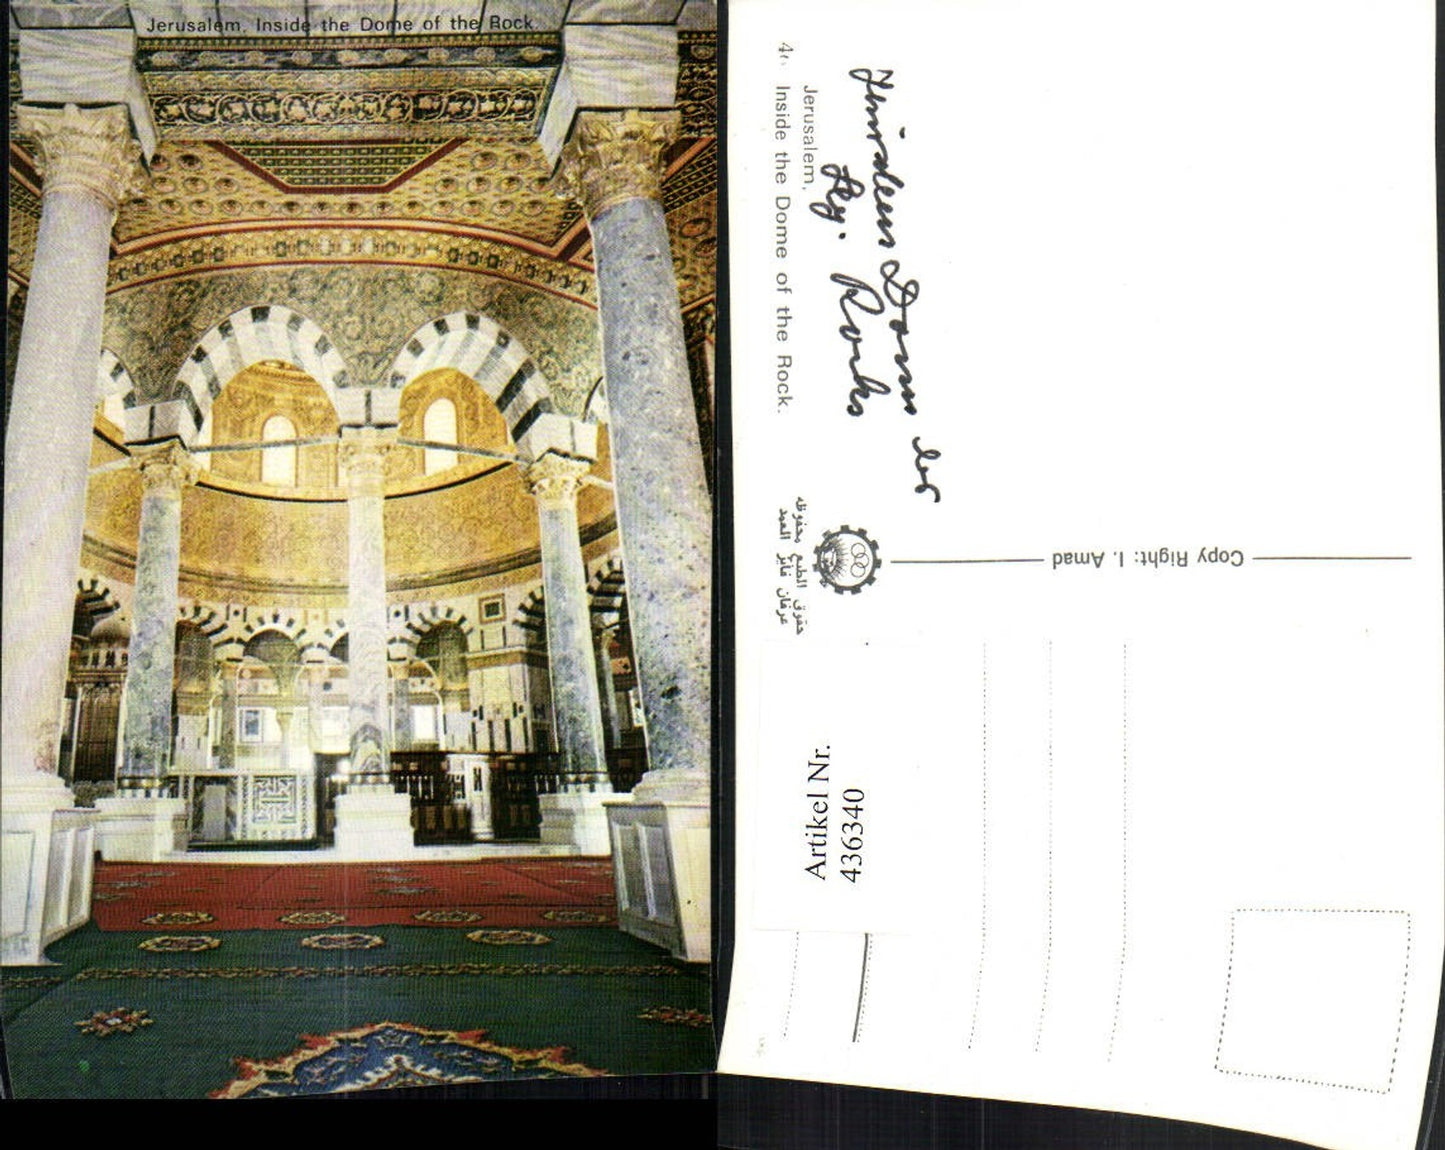 Jerusalem, Inside the Dome of the Rock
Jerusalem,
Inside the Dome of the Rock.
حقوق الطبع محفوظه
عرفان فايز العمد
Copy Right: I. Amad
Artikel Nr.
436340